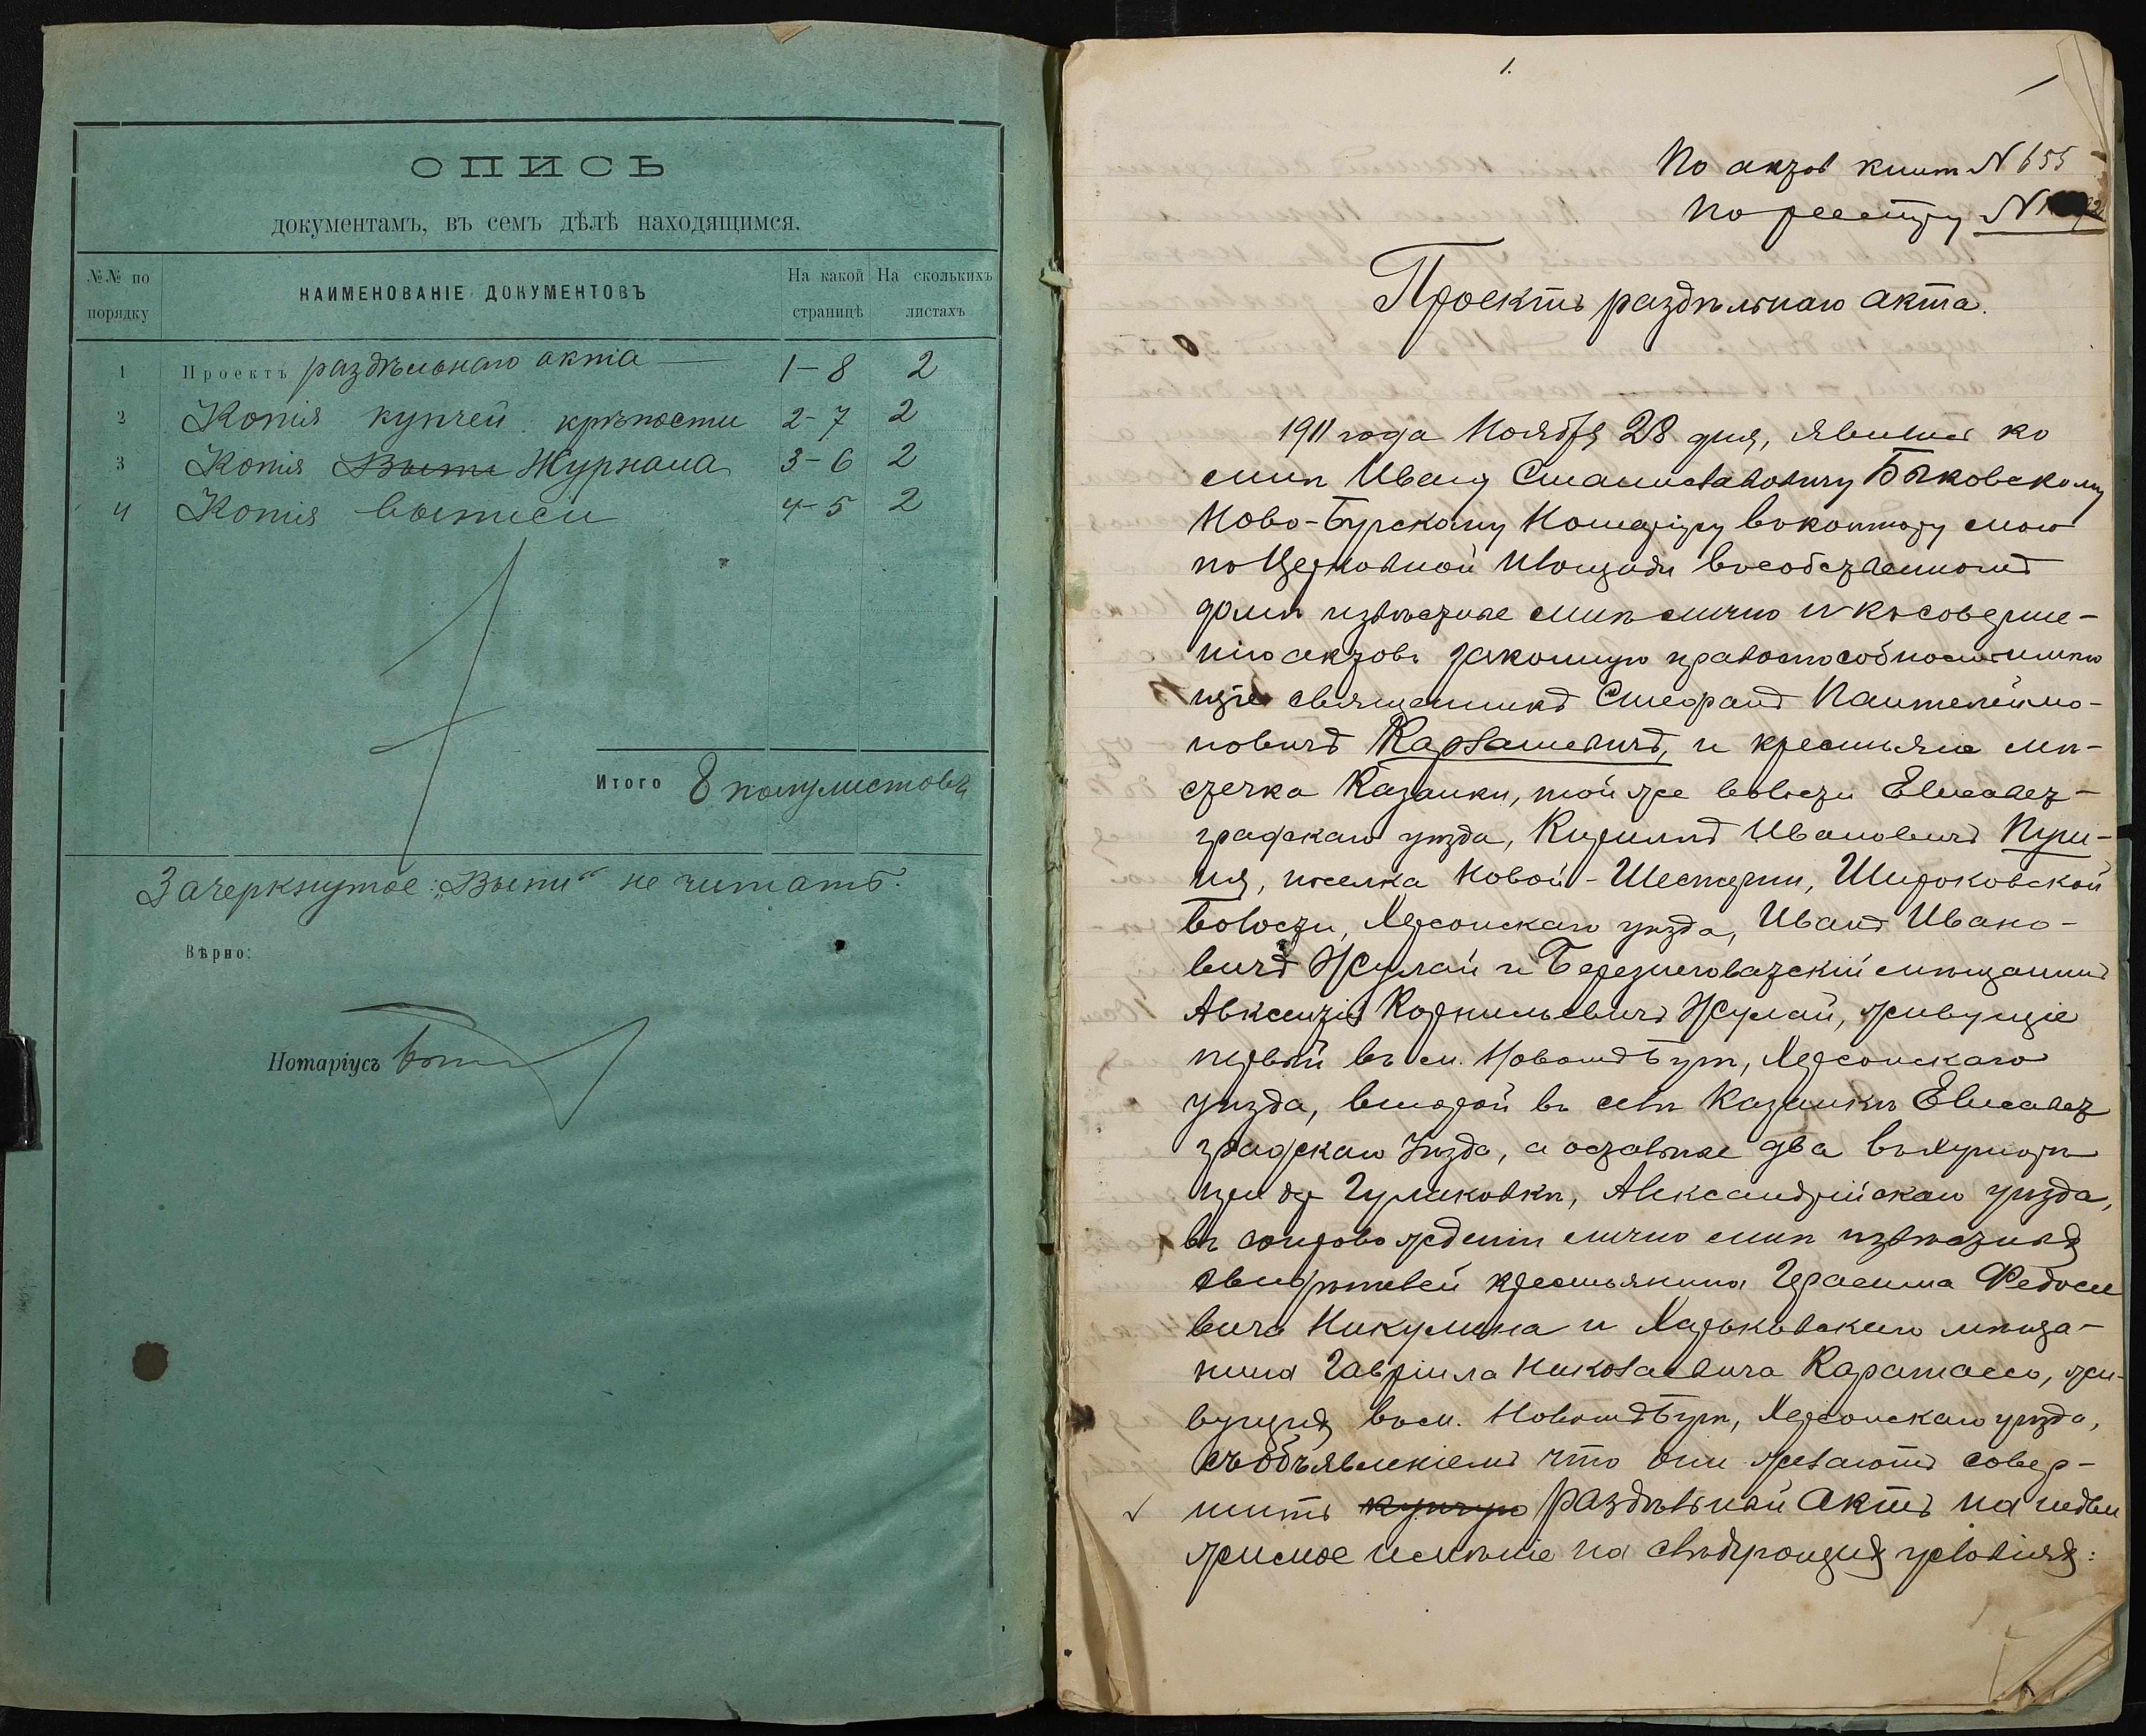 ОПИСЬ
документамъ, въ семъ дѣлѣ находящимся.
№№ по порядку
НАИМЕНОВАНІЕ ДОКУМЕНТОВЪ
На какой страницѣ
На сколькихъ листахъ
1 Проектъ раздѣльнаго акта 1-8 2
2 Копія купчей крѣпости 2-7 2
3 Копія Выпи Журнала 3-6 2
4 Копія выписи 4-5 2
Итого 8 полулистовъ
Зачеркнутое: „Выпи“ не читать.
Вѣрно:
Нотаріусъ
1.
По актов книг N 655
По реестру N
Проектъ раздѣльнаго акта.
1911 года Ноября 28 дня, явились ко
мнѣ Ивану Станиславовичу Быковскому
Ново-Бугскому Нотаріусу въ контору мою
по Церковной площади въ собственномъ
домѣ извѣстные мнѣ лично и къ соверше-
нію актовъ законную правоспособность имѣю
щіе священникъ Стефанъ Пантелеймо-
новичъ Карташевичъ, и крестьяне мѣ-
стечка Казанки, той же волости Елисавет-
градскаго уѣзда, Кириллъ Ивановичъ
поселка Новой-Шестерни, Широковской
волости, Херсонскаго уѣзда, Иванъ Ивано-
вичъ Жулай и Березнеговатскій мѣщанинъ
Авксентій Корнильевичъ Жулай, живущіе
первый въ м. Новомъ Бугѣ, Херсонскаго
уѣзда, второй въ селѣ Казанкѣ Елисавет
градскаго уѣзда, а остальные два въ хуторѣ
при др Гурлаковкѣ, Александрійскаго уѣзда,
въ сопровожденіи лично мнѣ извѣстныхъ
свидѣтелей крестьянина Герасима Федосее
вича Никулина и Харьковскаго мѣща-
нина Гавріила Николаевича Каратаево, жи-
вущихъ въ м. Новомъ Бугѣ, Херсонскаго уѣзда,
съ объявленіемъ что они желаютъ совер-
шить купчую раздѣльный актъ на недви
жимое имѣніе на слѣдующихъ условіяхъ: